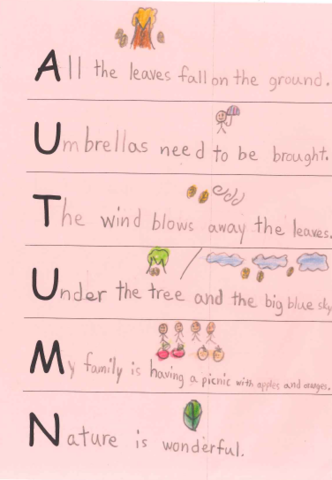 All the leaves fall on the ground.
Umbrellas need to be brought.
The wind blows away the leaves.
Under the tree and the big blue sky
My family is having a picnic with apples and oranges.
Nature is wonderful.